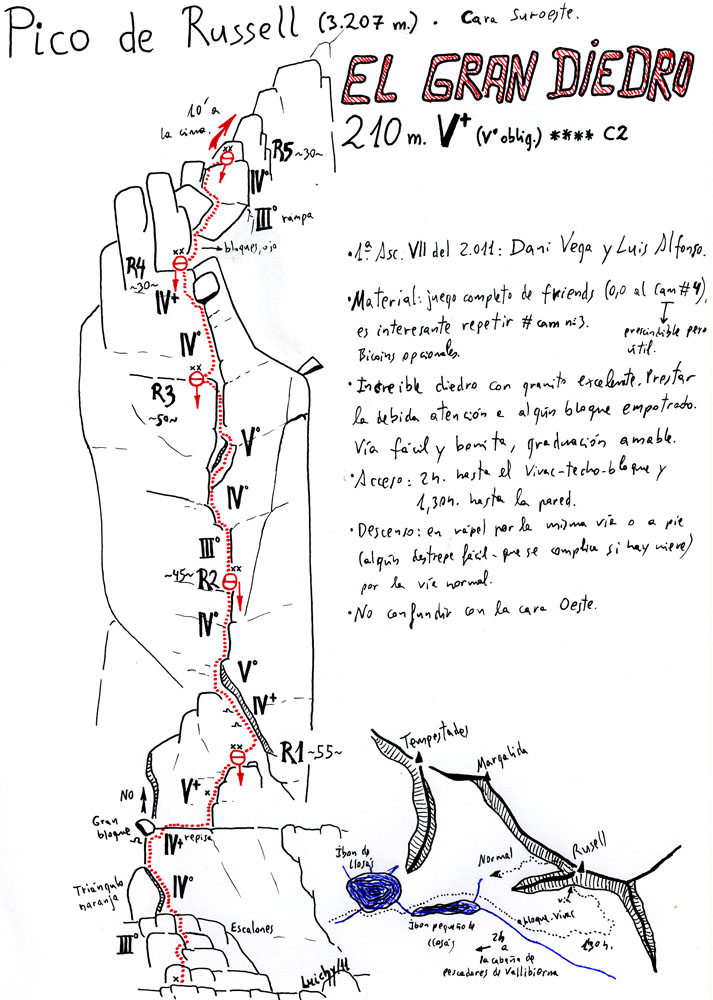 Pico de Russell (3.207 m.) . Cara Suroeste.
EL GRAN DIEDRO
210 m. V+ (Vº oblig.) **** C2
10' a
la cima.
R5 ~30~
IVº
IIIº rampa
bloques, ojo
R4
~30~
IV+
IVº
R3
~50~
Vº
IVº
IIIº
~45~ R2
IVº
Vº
IV+
R1 ~55~
V+
NO
Gran
bloque
IV+ repisa
IVº
Triángulo
naranja
IIIº
Escalones
Luichy/11
·1ª Asc. VII del 2.011: Dani Vega y Luis Alfonso.
·Material: juego completo de friends (0,0 al Cam#4),
es interesante repetir #cam nº3.
prescindible pero
útil.
Bicoins opcionales.
·Increible diedro con granito excelente. Prestar
la debida atención a algún bloque empotrado.
Vía fácil y bonita, graduación amable.
·Acceso: 2h. hasta el Vivac-techo-bloque y
1,30h. hasta la pared.
·Descenso: en rápel por la misma vía o a pie
(algún destrepe fácil - que se complica si hay nieve)
por la vía normal.
·No confundir con la cara Oeste.
Tempestades
Margalida
Rusell
Normal
Ibon de
llosás
Ibon pequeño de
llosás
bloque vivac
1,30 h.
2h
a
la cabaña de
pescadores de Vallibierna